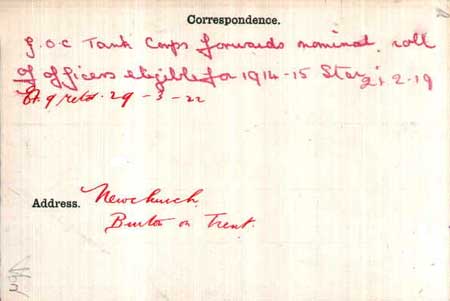 Correspondence.
G.O.C Tank Corps forwards nominal roll
of officers eligible for 1914-15 Star 21.2.19
retd. 29-3-22
Address. Newchurch
Burton on Trent.